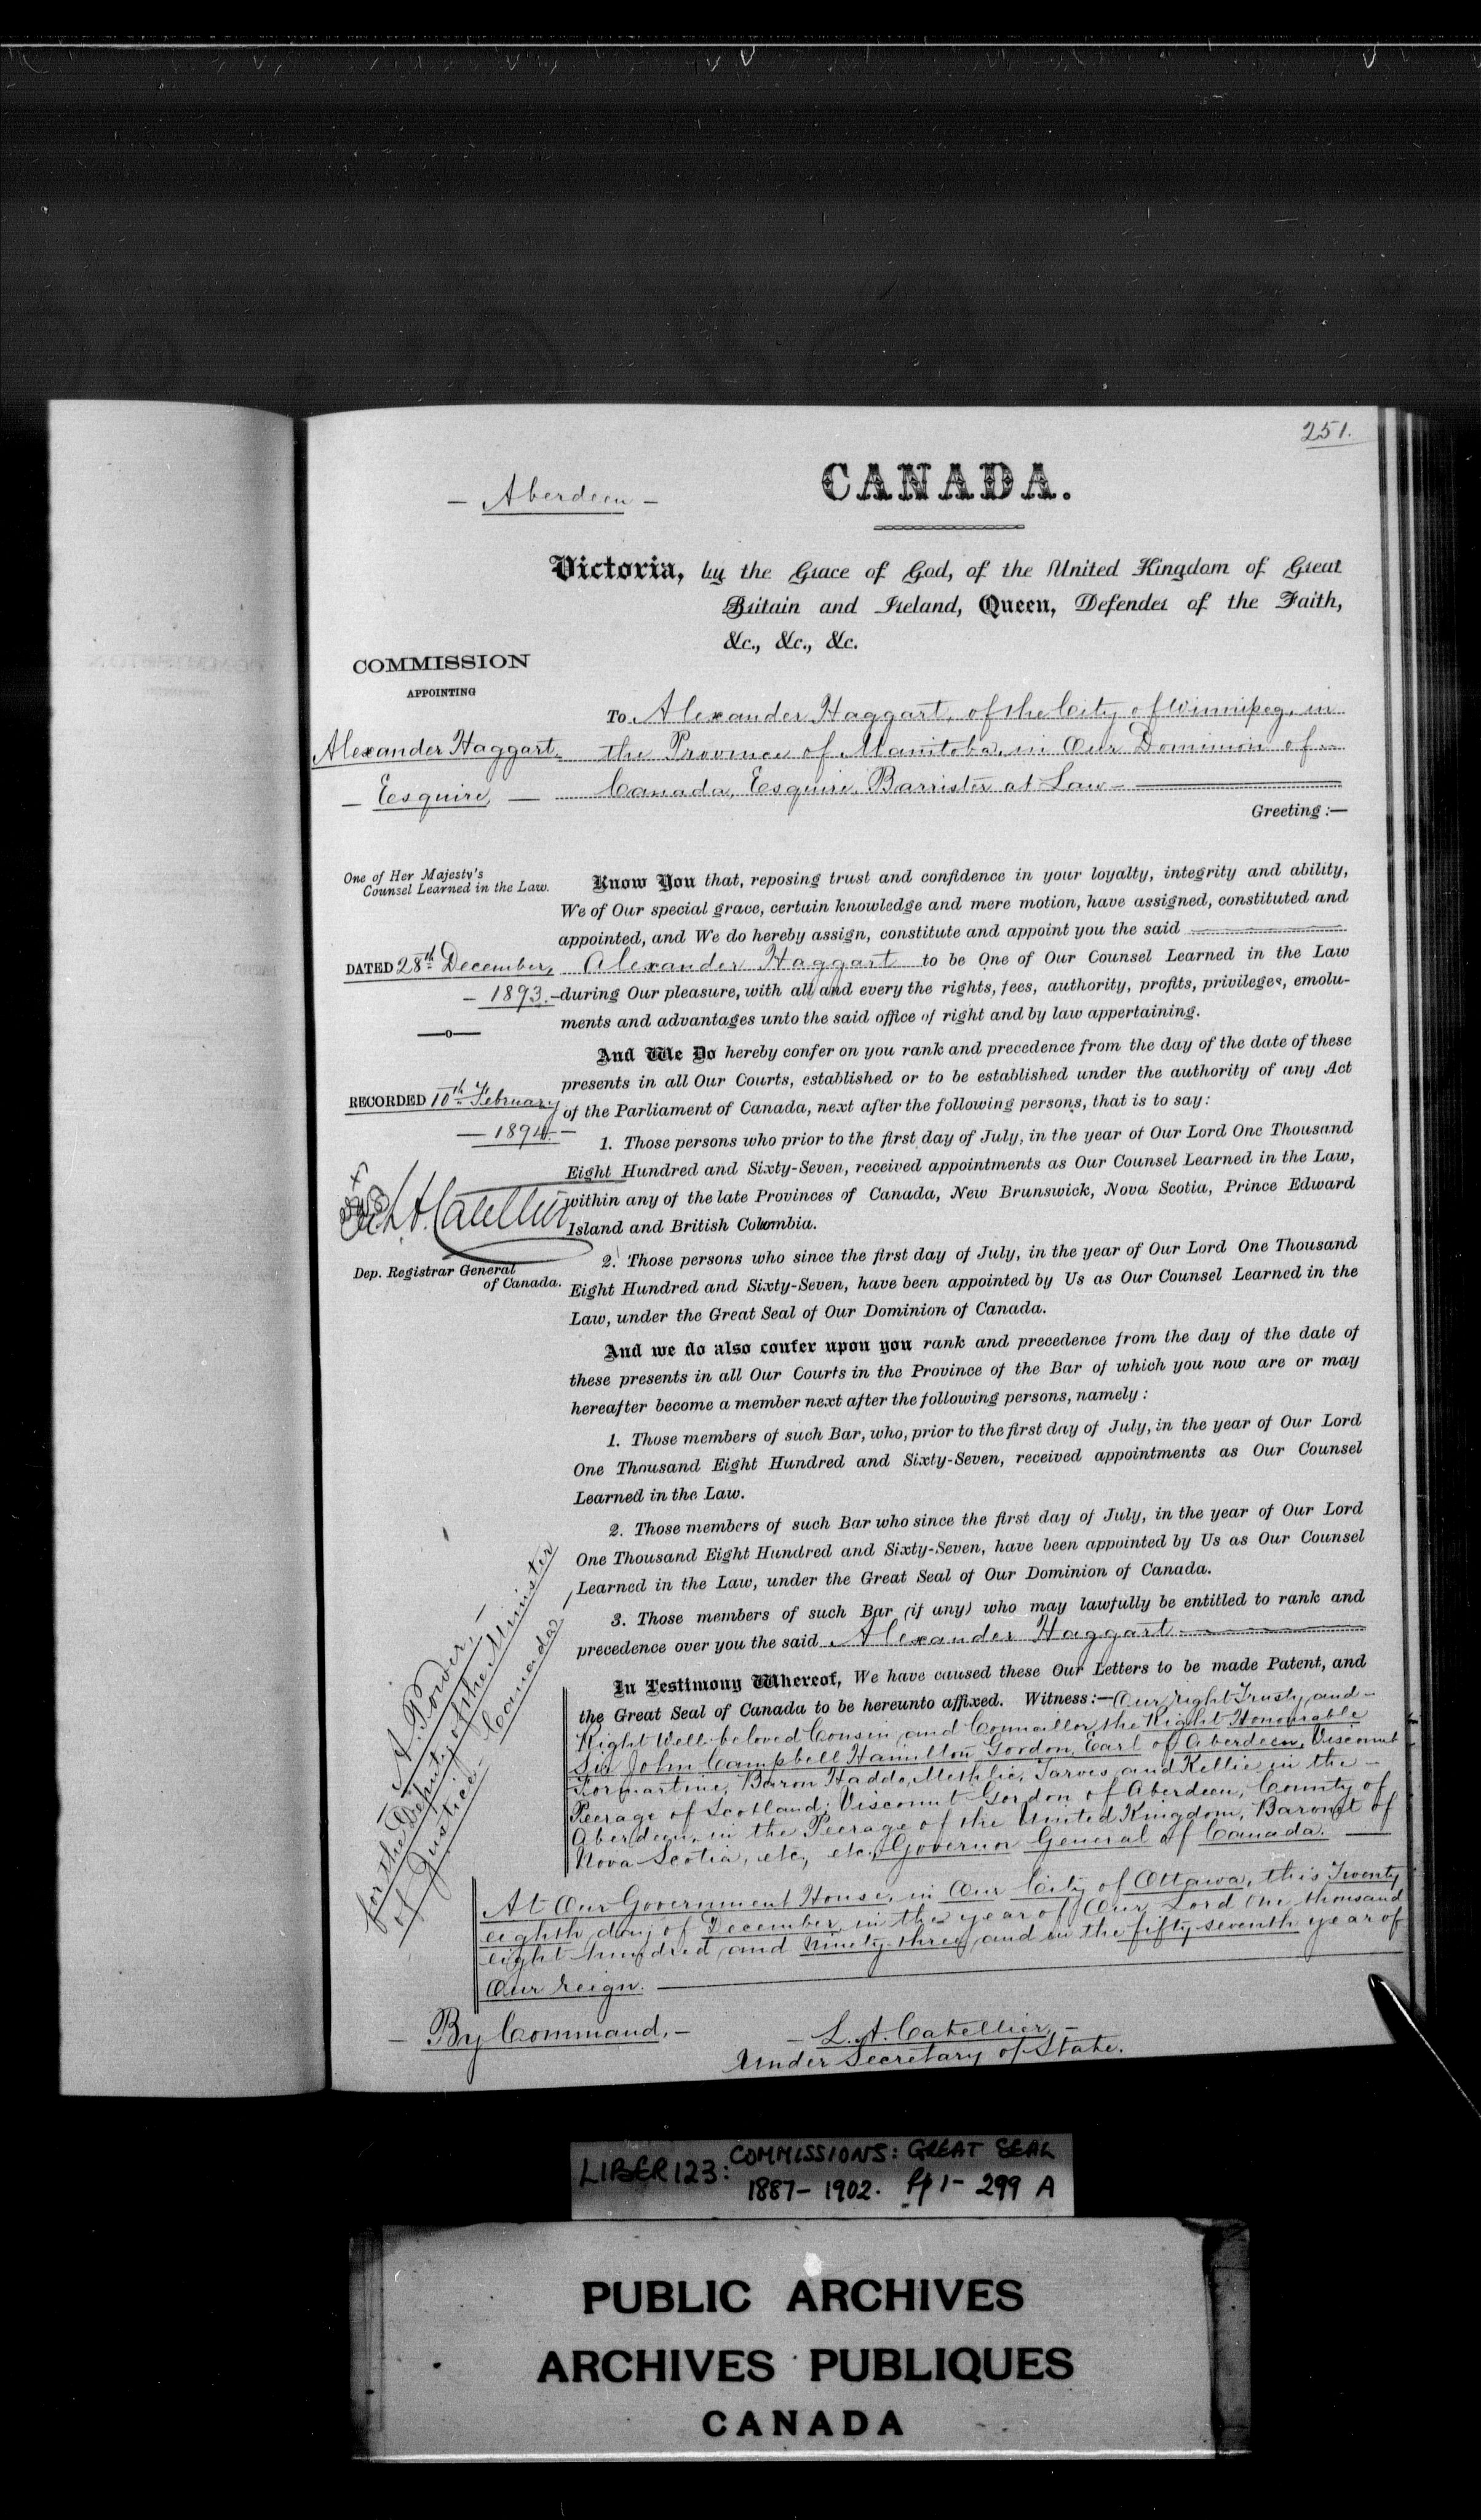 251.
— Aberdeen —
CANADA.
Victoria, by the Grace of God, of the United Kingdom of Great
Britain and Ireland, Queen, Defender of the Faith,
&c., &c., &c.
COMMISSION
APPOINTING
Alexander Haggart,
— Esquire, —
To Alexander Haggart, of the City of Winnipeg, in
the Province of Manitoba, in Our Dominion of
Canada, Esquire, Barrister at Law
Greeting :—
One of Her Majesty's
Counsel Learned in the Law.
DATED 28th December,
— 1893. —
—o—
RECORDED 10th February
— 1894 —
L. A. Catellier
Dep. Registrar General
of Canada.
Know You that, reposing trust and confidence in your loyalty, integrity and ability,
We of Our special grace, certain knowledge and mere motion, have assigned, constituted and
appointed, and We do hereby assign, constitute and appoint you the said
Alexander Haggart to be One of Our Counsel Learned in the Law
during Our pleasure, with all and every the rights, fees, authority, profits, privileges, emolu-
ments and advantages unto the said office of right and by law appertaining.
And We Do hereby confer on you rank and precedence from the day of the date of these
presents in all Our Courts, established or to be established under the authority of any Act
of the Parliament of Canada, next after the following persons, that is to say:
1. Those persons who prior to the first day of July, in the year of Our Lord One Thousand
Eight Hundred and Sixty-Seven, received appointments as Our Counsel Learned in the Law,
within any of the late Provinces of Canada, New Brunswick, Nova Scotia, Prince Edward
Island and British Columbia.
2. Those persons who since the first day of July, in the year of Our Lord One Thousand
Eight Hundred and Sixty-Seven, have been appointed by Us as Our Counsel Learned in the
Law, under the Great Seal of Our Dominion of Canada.
And we do also confer upon you rank and precedence from the day of the date of
these presents in all Our Courts in the Province of the Bar of which you now are or may
hereafter become a member next after the following persons, namely :
1. Those members of such Bar, who, prior to the first day of July, in the year of Our Lord
One Thousand Eight Hundred and Sixty-Seven, received appointments as Our Counsel
Learned in the Law.
2. Those members of such Bar who since the first day of July, in the year of Our Lord
One Thousand Eight Hundred and Sixty-Seven, have been appointed by Us as Our Counsel
Learned in the Law, under the Great Seal of Our Dominion of Canada.
3. Those members of such Bar (if any) who may lawfully be entitled to rank and
precedence over you the said Alexander Haggart
In Testimony Whereof, We have caused these Our Letters to be made Patent, and
the Great Seal of Canada to be hereunto affixed. Witness :— Our Right Trusty and
Right Well-beloved Cousin and Councillor the Right Honourable
Sir John Campbell Hamilton Gordon, Earl of Aberdeen, Viscount
Formartine, Baron Haddo, Methlic, Tarves and Kellie, in the
Peerage of Scotland; Viscount Gordon of Aberdeen, County of
Aberdeen, in the Peerage of the United Kingdom, Baronet of
Nova Scotia, etc., etc. Governor General of Canada.
At Our Government House, in Our City of Ottawa, this Twenty
eighth day of December in the year of Our Lord one thousand
eight hundred and ninety-three and in the fifty-seventh year of
Our reign.
A. Power, —
for the Deputy of the Minister
of Justice, Canada
— By Command, —
— L. A. Catellier, —
Under Secretary of State.
LIBER 123: COMMISSIONS: GREAT SEAL
1887 – 1902. Pp 1 – 299 A
PUBLIC ARCHIVES
ARCHIVES PUBLIQUES
CANADA